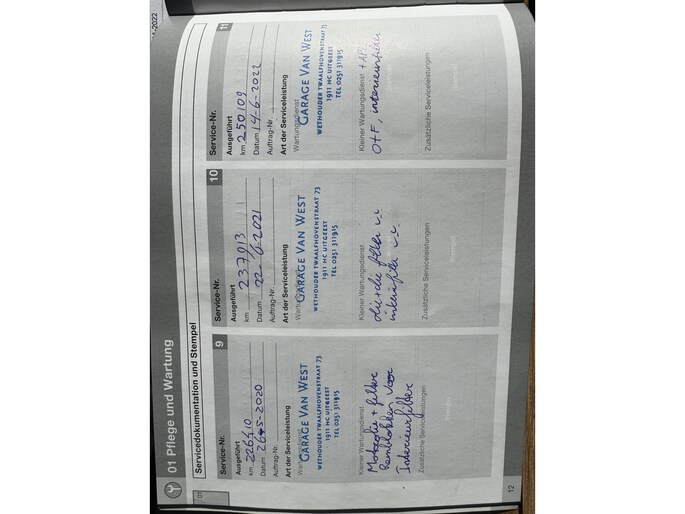 01 Pflege und Wartung
Servicedokumentation und Stempel
01
Service-Nr. 9
Ausgeführt
km 226410
Datum 26-5-2020
Auftrag-Nr.
Art der Serviceleistung
GARAGE VAN WEST
WETHOUDER TWAALFHOVENSTRAAT 73
1911 HC UITGEEST
TEL 0251 311915
Kleiner Wartungsdienst
Motorolie + filter
Remblokken voor
Interieurfilter
Zusätzliche Serviceleistungen
Service-Nr. 10
Ausgeführt
km 237013
Datum 22-6-2021
Auftrag-Nr.
Art der Serviceleistung
GARAGE VAN WEST
WETHOUDER TWAALFHOVENSTRAAT 73
1911 HC UITGEEST
TEL 0251 311915
Kleiner Wartungsdienst
filter
Zusätzliche Serviceleistungen
Service-Nr. 11
Ausgeführt
km 250109
Datum 14-6-2022
Auftrag-Nr.
Art der Serviceleistung
Wartungsdienst
GARAGE VAN WEST
WETHOUDER TWAALFHOVENSTRAAT 73
1911 HC UITGEEST
TEL 0251 311915
Kleiner Wartungsdienst + APK
O+F, interieurfilter
Zusätzliche Serviceleistungen
12